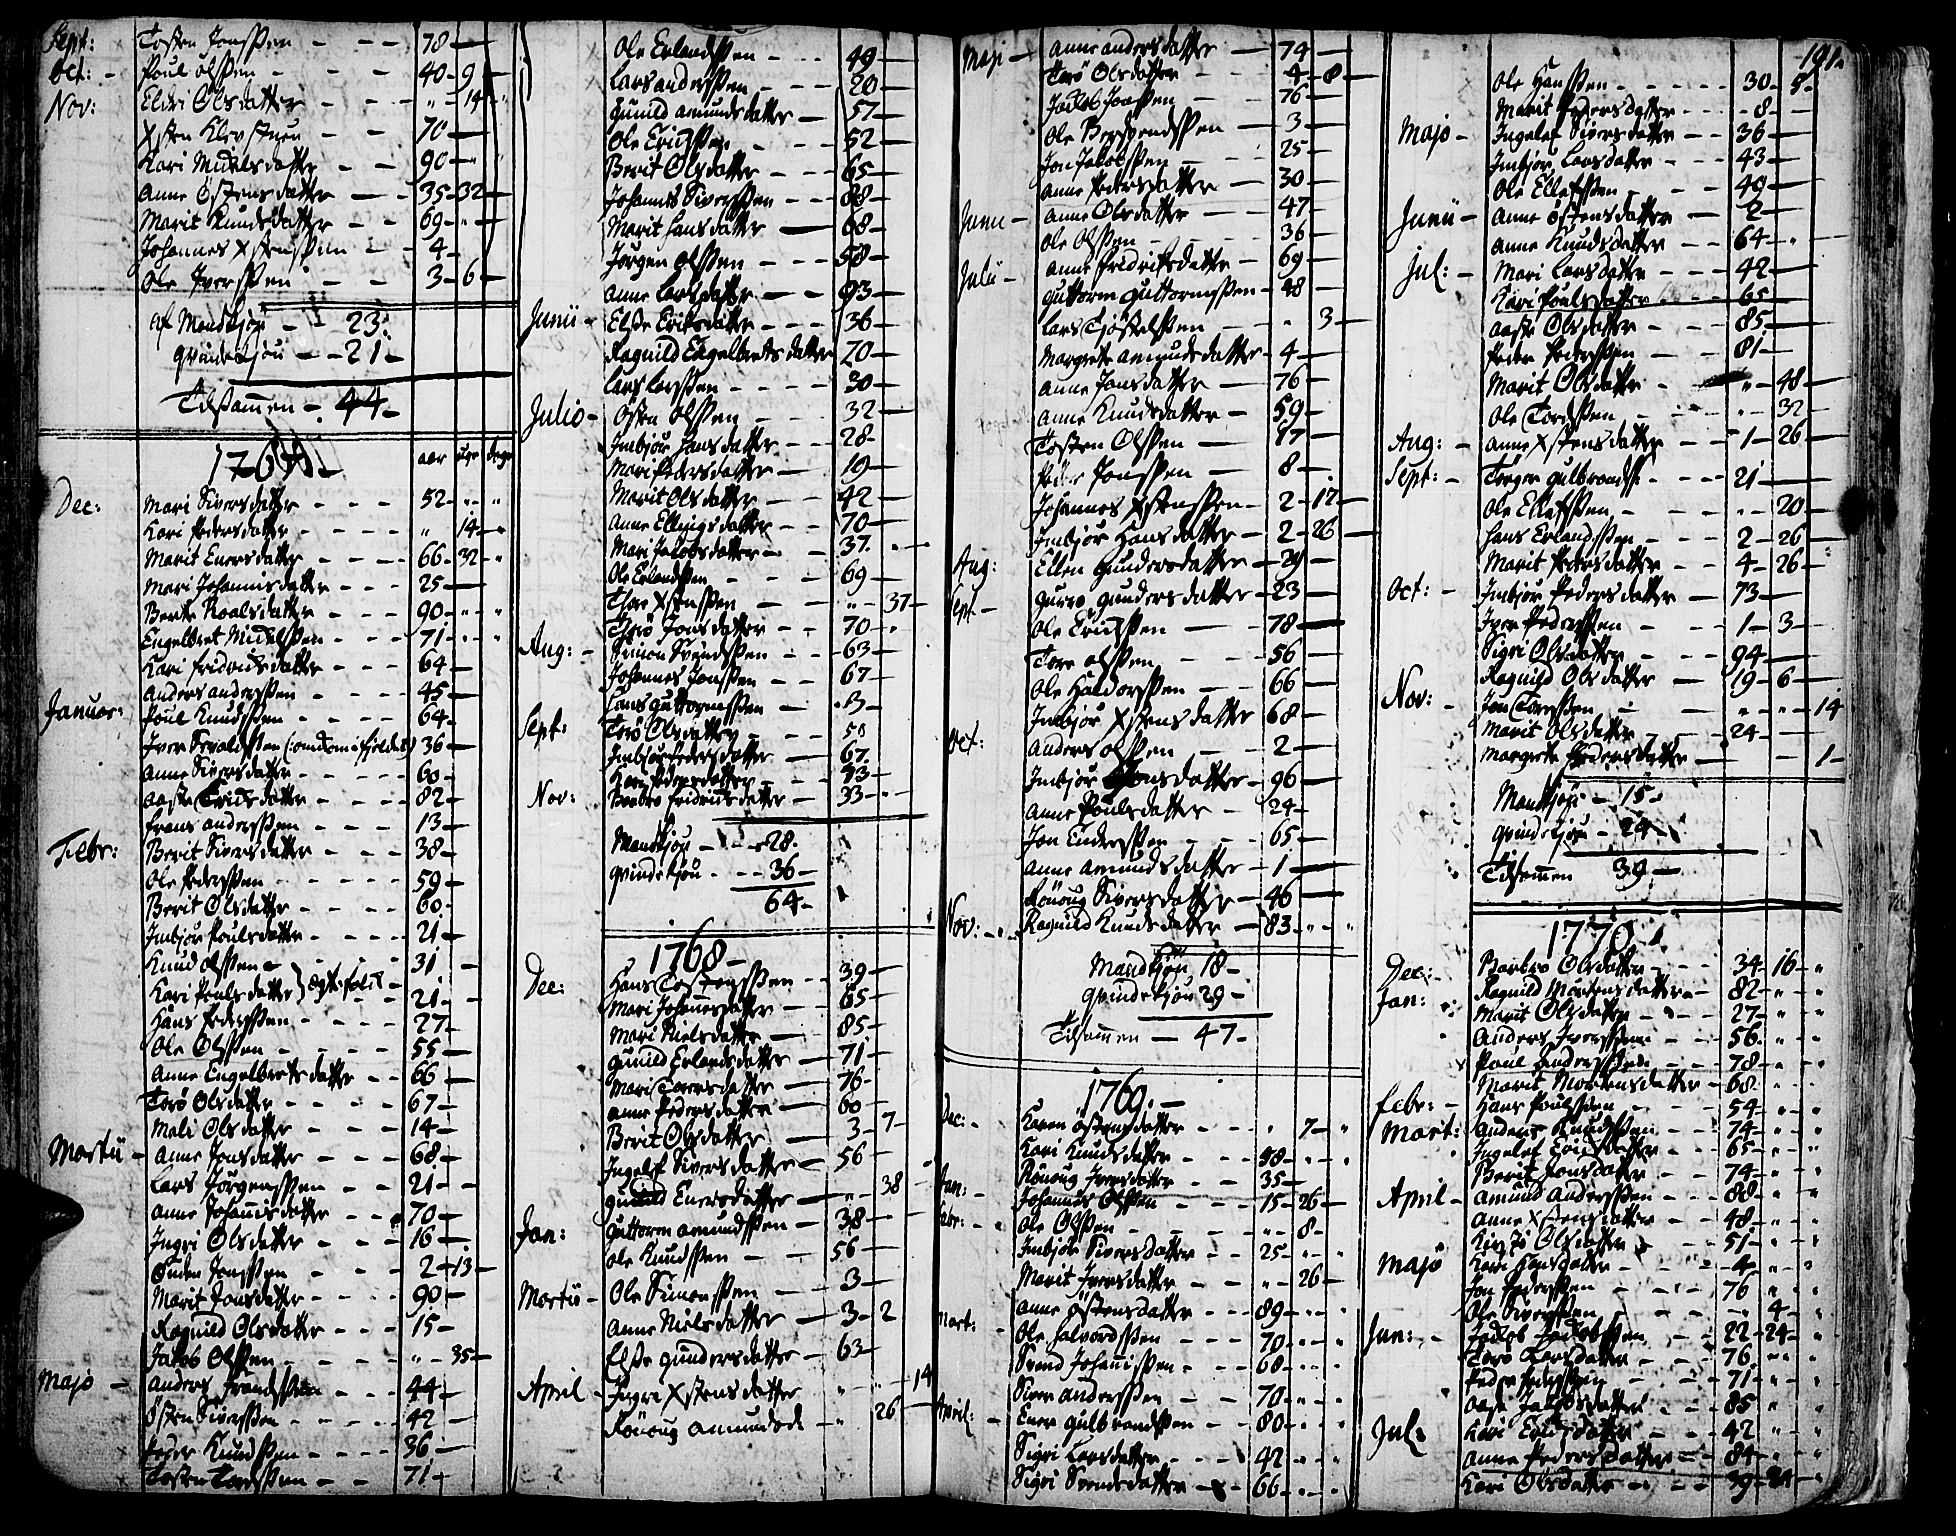 Sept: Tosten Jonssen - - - 78 -
Oct: - Poul Olssen - - - 40 - 9 -
Nov: Eldri Olsdatter - - - " - 14 - "
Xsten - - 70 -
Kari Mickelsdatter - - 90 - "
Anne Østensdatter - 35 - 32 -
Marit Knudsdatter - - 69 - " -
Johannes Xstenssen - - 4 -
Ole Iverssen - - - 3 - 6 -
af Mandkjøn - 23 -
Qvindekjøn - - 21 -
Tilsammen - 44 -
aar uger dage
Dec: Mari Siversdatter - - 52 - " - "
Kari Pedersdatter - - " 14 - "
Marit Enersdatter - - 66 - 32 - "
Mari Johannisdatter - - 25 -
Berte Roalsdatter - - 90 - " - "
Engelbret Mickelssen - - 71 - " - "
Kari Fridricsdatter - - 64 -
Anders Anderssen - - - 45 -
Januar: Poul Knudssen - - - 64 -
Iver 36 -
Anne Siversdatter - - - 60 -
Aaste Ericsdatter - - - 82 -
Frans Anderssen - - - 13 -
Febr: Berit Siversdatter - - - 38 -
Ole Pederssen - - - 59 -
Berit Olsdatter - - - 60 -
Imbjør Poulsdatter - - - 21 -
Knud Olssen - 31 -
Kari Poulsdatter } 21 -
Hans Pederssen - - - 27 -
Ole Olssen - - - 55 -
Anne Engelbretsdatter - - 66 -
Torø Olsdatter - - - 67 -
Mali Olsdatter - - - 14 -
Martii - Anne Jonsdatter - - - 68 -
Lars Jørgenssen - - 21 -
Anne Johannisdatter - - 70 -
Ingri Olsdatter - - - 16 -
Jonssen - - - 2 - 13 -
Marit Jonsdatter - - - 90 -
Ragnild Olsdatter - - - 15 -
Jacob Olssen - - - " - 35 -
Majo - Anders - - 44 -
Østen Siverssen - - - 42 -
Peder Knudssen - - - 36 -
Tosten - - 71 -
Ole Erlandssen - - - 49 -
Lars Anderssen - - - 20 -
Gunild Amundsdatter - 57 -
Ole Ericssen - - - 52 -
Berit Olsdatter - - - 65 -
Johannes Siverssen - - - 88 -
Marit Hansdatter - 68 -
Jørgen Olssen - - - 58 -
Anne Larsdatter - - 93 -
Junii - Else Eriksdatter - - - 36 -
Ragnild Engelbretsdatter 70 -
Lars Larssen - - - 30 -
Julio - Østen Olssen - - - 32 -
Imbjør Hansdatter - - 28 -
Mari Pedersdatter - - 19 -
Marit Olsdatter - - - 42 -
Anne Ellingsdatter - - 70 -
Mari Jacobsdatter - - 37 -
Ole Erlandssen - - - 69 -
Thore Xstenssen - - " - 37 -
Jonsdatter - - 70 -
Aug: - Simon Svendssen - - - 63 -
Johannes Jonssen - - 67 -
Hans Guttormssen - - 3 -
Sept: Torø Olsdatter - - - 50
Imbjør Pedersdatter - 67
Kari Pedersdatter - - - 93 -
Nov: Barbro Fridricsdatter - 33 -
Mandkjøn - - - 28 -
Qvindekjøn - - - 36 -
64 -
1768 -
Dec: Hans Tostenssen - - 39 -
Mari Johannesdatter - - 65 -
Mari Nielsdatter - - 85 -
Gunild Erlandsdatter - 71 -
Mari Toresdatter - - 76 -
Anne Pedersdatter - 60 -
Berit Olsdatter - - 3 - 7 -
Ingelef Siversdatter - 56 -
Gunild Enersdatter - " - 38 -
Jan: Guttorm Amundssen - 38 -
Ole Knudssen - - 56 -
Martii - Ole Simonssen - - 3 -
Anne Nielsdatter - 3 - 2
Else Gundersdatter - 63 -
April - Ingri Xstensdatter " " - 14
Rønoug Amundsd: - " 26 -
Maji - Anne Andersdatter - 74 -
Torø Olsdatter - 4 - 8 -
Jacob Jonssen - 76 -
Ole - 3 -
Jon Jacobssen - - 25 -
Anne Pedersdatter - 30 -
Junii - Anne Olsdatter - 47 -
Ole Olssen - - 36 -
Julii - Anne Fredriksdatter - 69 -
Guttorm Guttormssen - 48 -
Lars - " 3 -
Margrete Amundsdatter - 4 -
Anne Jonsdatter - 76 -
Anne Knudsdatter - 59 -
Tosten Olssen - 87 -
Peder Jonssen - 8 -
Johannes Xstenssen - 2 - 12 -
Imbjør Hansdatter - 2 - 26 -
Aug: Ellen Gundersdatter - 29 -
Sept - Gurro Gundersdatter - 23 -
Ole Ericssen - 78 -
Tore Olssen - - 56 -
Ole Haldorssen - - 66 -
Imbjør Xstensdatter 68 -
Oct: Anders Olssen - - 2 -
Imbjør Jonsdatter - 96 -
Anne Poulsdatter - 24 -
Jon Enderssen - - 65 -
Anne Amundsdatter - 1 -
Rønoug Siversdatter - 46 -
Nov: - Ragnild Knudsdatter - 83 - " - "
Mandkjøn 18 -
Qvindekjøn 29 -
Tilsammen - 47 -
1769. -
Dec: - Karen Østensdatter - - - " 7 - "
Kari Knudsdatter - - 58 - " - "
Jan: Rønoug Iversdatter - - 35 -
Johannes Olssen - - - 15 - 26 -
Febr: - Ole Olssen - - - " - 8 -
Imbjør Siversdatter - - 25 - " - "
Marit Iversdatter - - " - 26 -
Mart: Anne Østensdatter - - - 89 - " - "
Ole Halvordssen - - - 70 - " - "
Svend Johanissen - - - 68 - " - "
Siver Anderssen - - 70 - " - "
April: - Ener Gulbrandssen - - 80 - " - "
Sigri Larsdatter - - - 42 - " - "
Sigri Svendsdatter - 66 - " - "
191.
Ole Hanssen - - - - 30 - 5 -
Marit Pedersdatter - - - 8 -
Majo - Ingelef Siversdatter - - 36 -
Imbjør Larsdatter - - - 43 -
Ole Ellefssen - - - 49 -
Junii - Anne Østensdatter - - 2 -
Anne Knudsdatter - - 64 - " -
Jul: - Mari Larsdatter - - - 42 -
Kari Poulsdatter - - 65 -
Aaste Olsdatter - - - 85 -
Peder Pederssen - - 81 -
Marit Olsdatter - " - 48 -
Ole Tordssen - - - " - 32 -
Aug: - Anne Xstensdatter - - 1 - 26 -
Sept: - Torger Gulbrandss: - - - 21 -
Ole Ellefssen - - - " - 20 -
Hans Erlandssen - - - 2 - 26 -
Marit Pedersdatter - - 4 - 26 -
Oct: - Imbjør Pedersdatter - 73 -
Iver Pederssen - - - 1 - 3 -
Sigri Olsdatter - - - 94 -
Ragnild Olsdatter - - 19 - 6 -
Nov: - Jon Toressen - - " - " - 14
Marit Olsdatter - - - 24 -
Margrete Pedersdatter - - 1 -
Mandkjøn - 15 -
Qvindekjøn - 24 -
Tilsammen 39 -
1770 -
Dec: - Barbro Olsdatter - - 34 - 16 - "
Jan: Ragnild Mortensdatter - - 82 - " - "
Marit Olsdatter - - - 27 - " - "
Anders Iverssen - - 56 - " - "
Poul Anderssen - - 78 - " - "
Marit Mortensdatter - 68 - " - "
Febr: - Hans Poulssen - - - 54 - " - "
Mart: Anders Knudssen - - 74 - " - "
Ingelef - - 65 - " - "
Berit Jonsdatter - - 74 - " - "
April - Amund Anderssen - - - 88 - " - "
Anne Xstensdatter - - 48 - " - "
Olsdatter - - 51 - " - "
Majo Kari Hansdatter - - 4 - " - "
Jon Pederssen - - - 76 " "
Ole Siverssen - - " - 4 - "
Jun: - Jacob Jacobssen - - - 22 - 24 - "
Torø Larsdatter - - 76 - " "
Peder Pederssen - - - 71 - " - "
Aase Jacobsdatter - - 85 " "
Jul: Kari - - - 42 - " "
Anne Pedersdatter - - 84 - " "
Kari Olsdatter - - - 39 - 24 - "